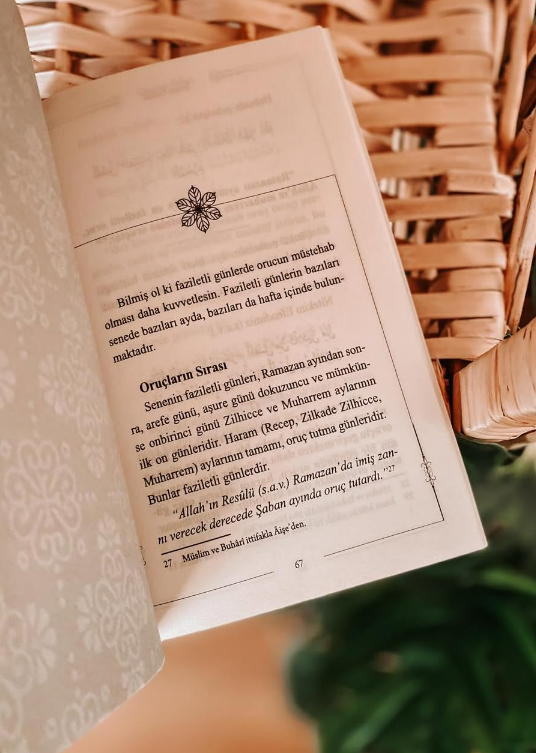 Bilmiş ol ki faziletli günlerde orucun müstehab
olması daha kuvvetlesin. Faziletli günlerin bazıları
senede bazıları ayda, bazıları da hafta içinde bulun-
maktadır.
Oruçların Sırası
Senenin faziletli günleri, Ramazan ayından son-
ra, arefe günü, aşure günü dokuzuncu ve mümkün-
se onbirinci günü Zilhicce ve Muharrem aylarının
ilk on günleridir. Haram (Recep, Zilkade Zilhicce,
Muharrem) aylarının tamamı, oruç tutma günleridir.
Bunlar faziletli günlerdir.
"Allah'ın Resûlü (s.a.v.) Ramazan'da imiş zan-
nı verecek derecede Şaban ayında oruç tutardı."27
27 Müslim ve Buhârî ittifakla Âişe'den.
67